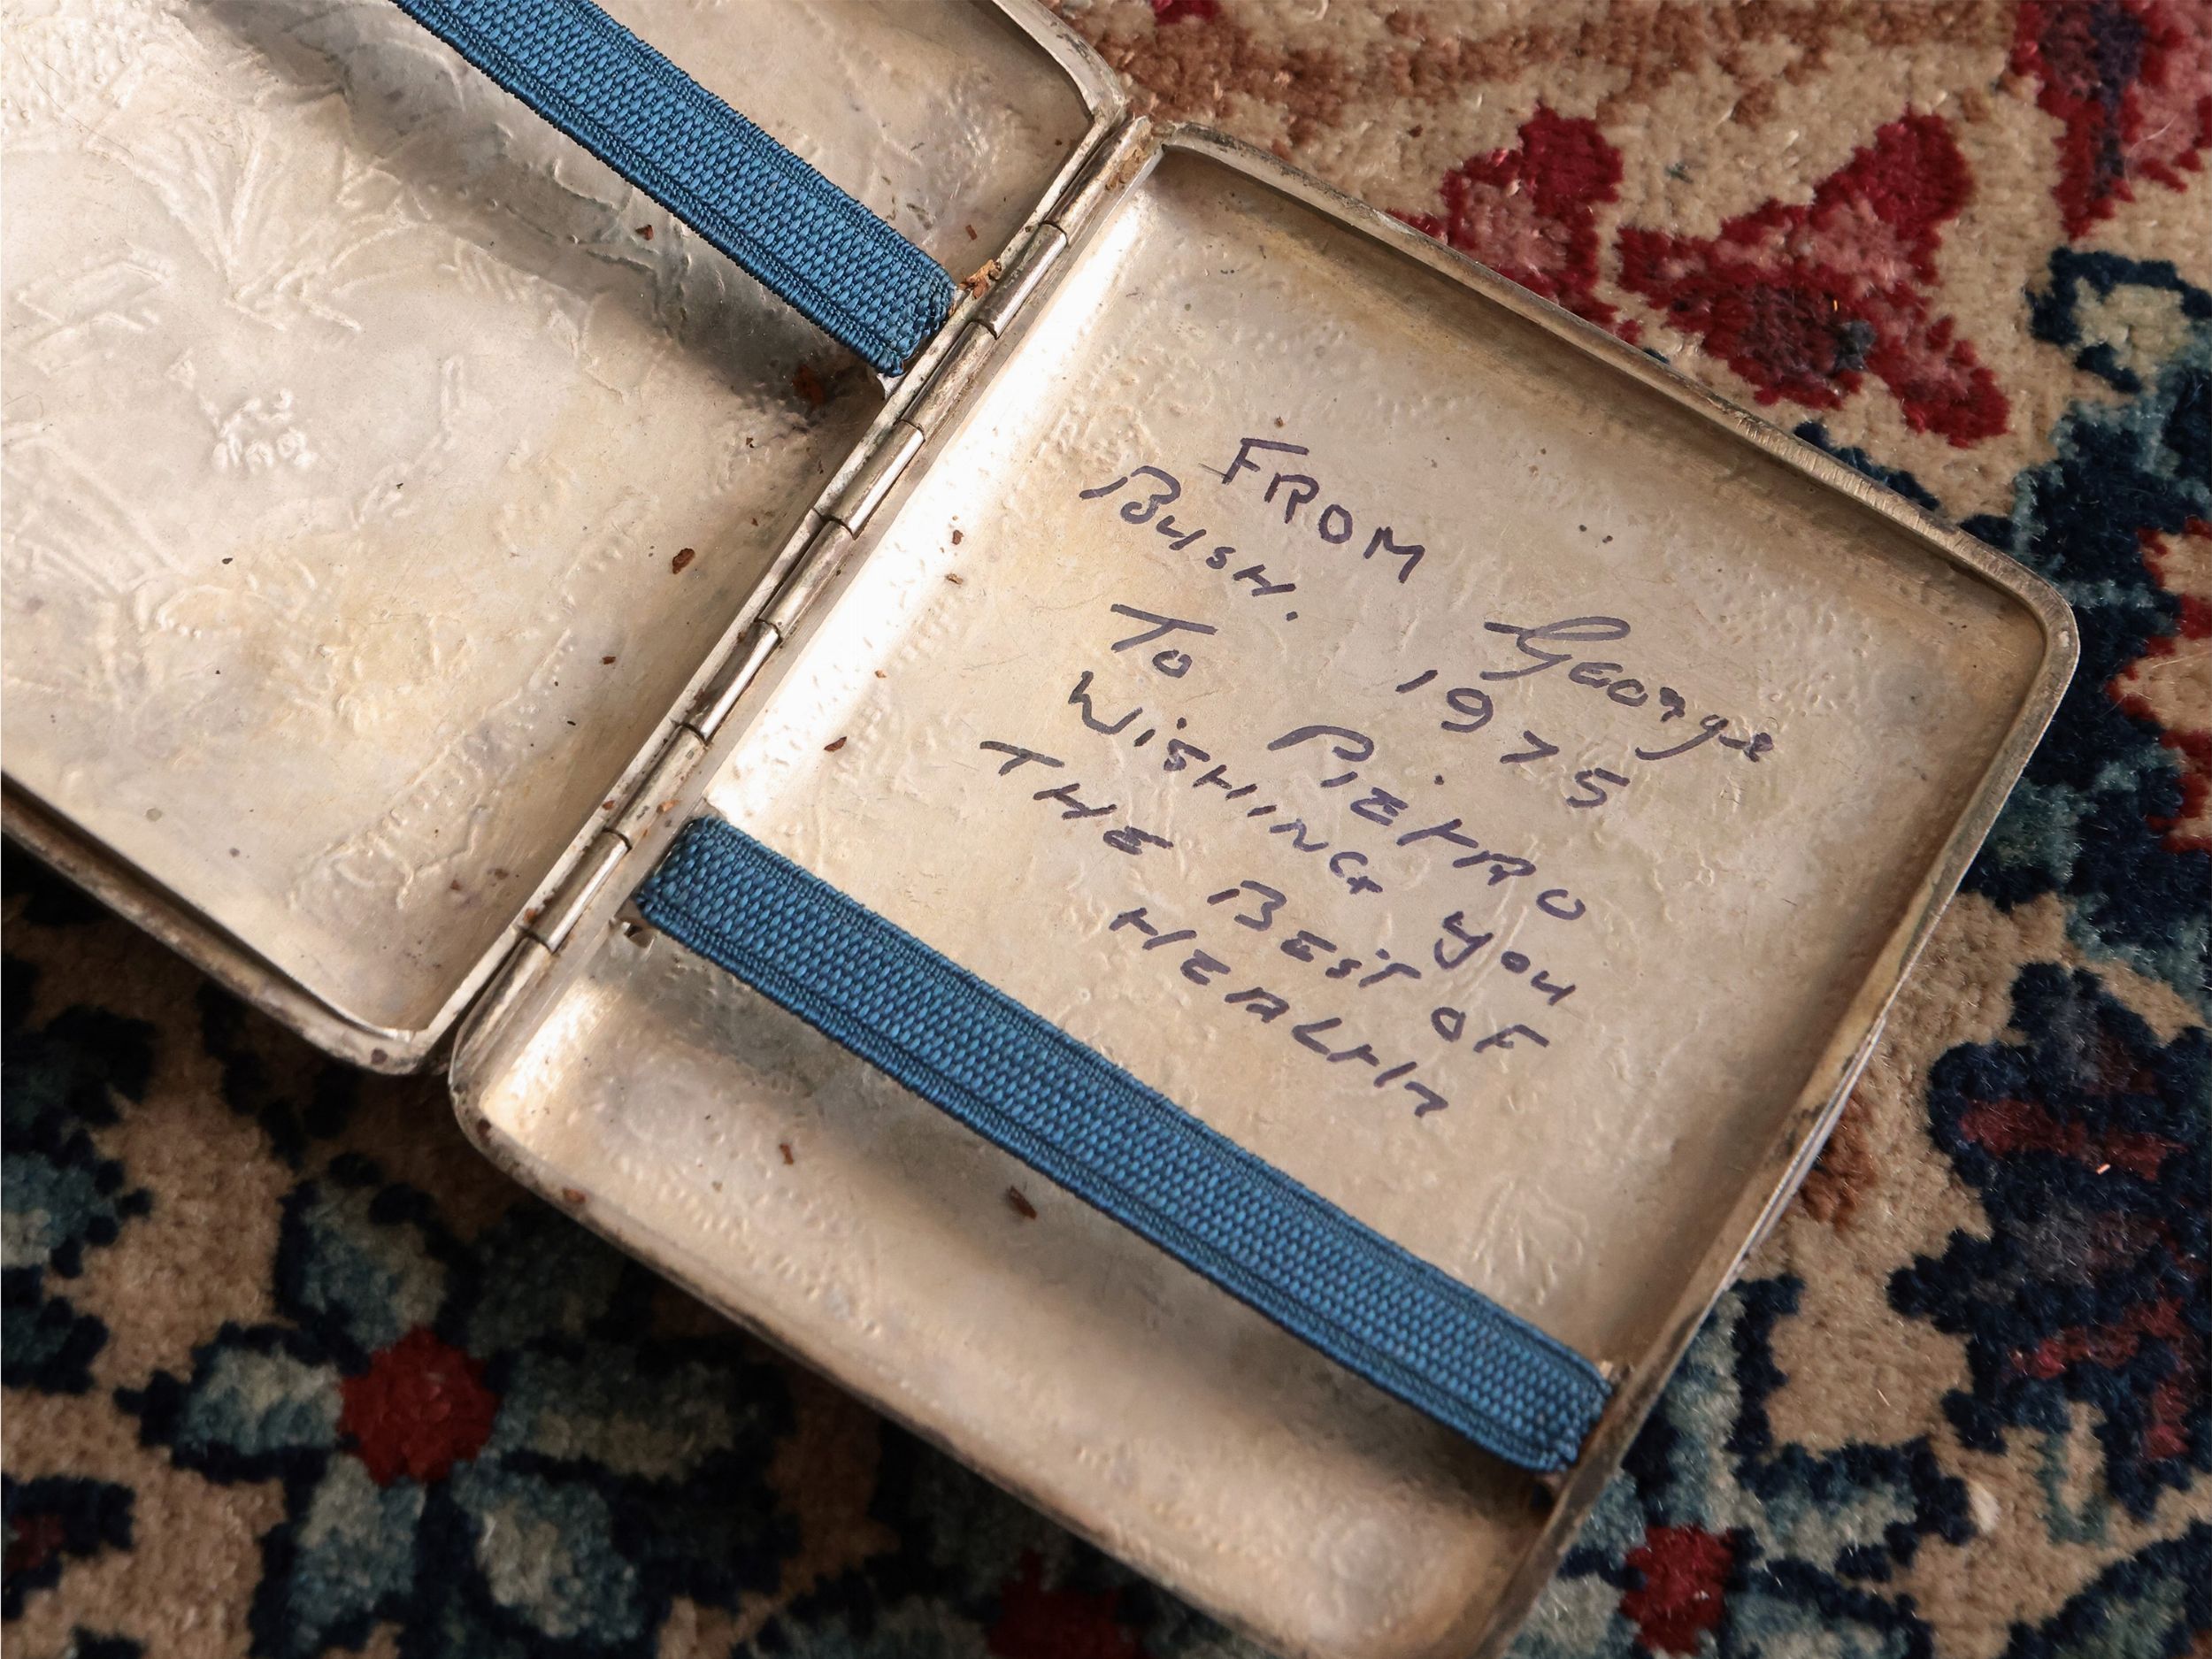 FROM George
Bush. 1975
To Pietro
Wishing you
THE BEST OF
HEALTH